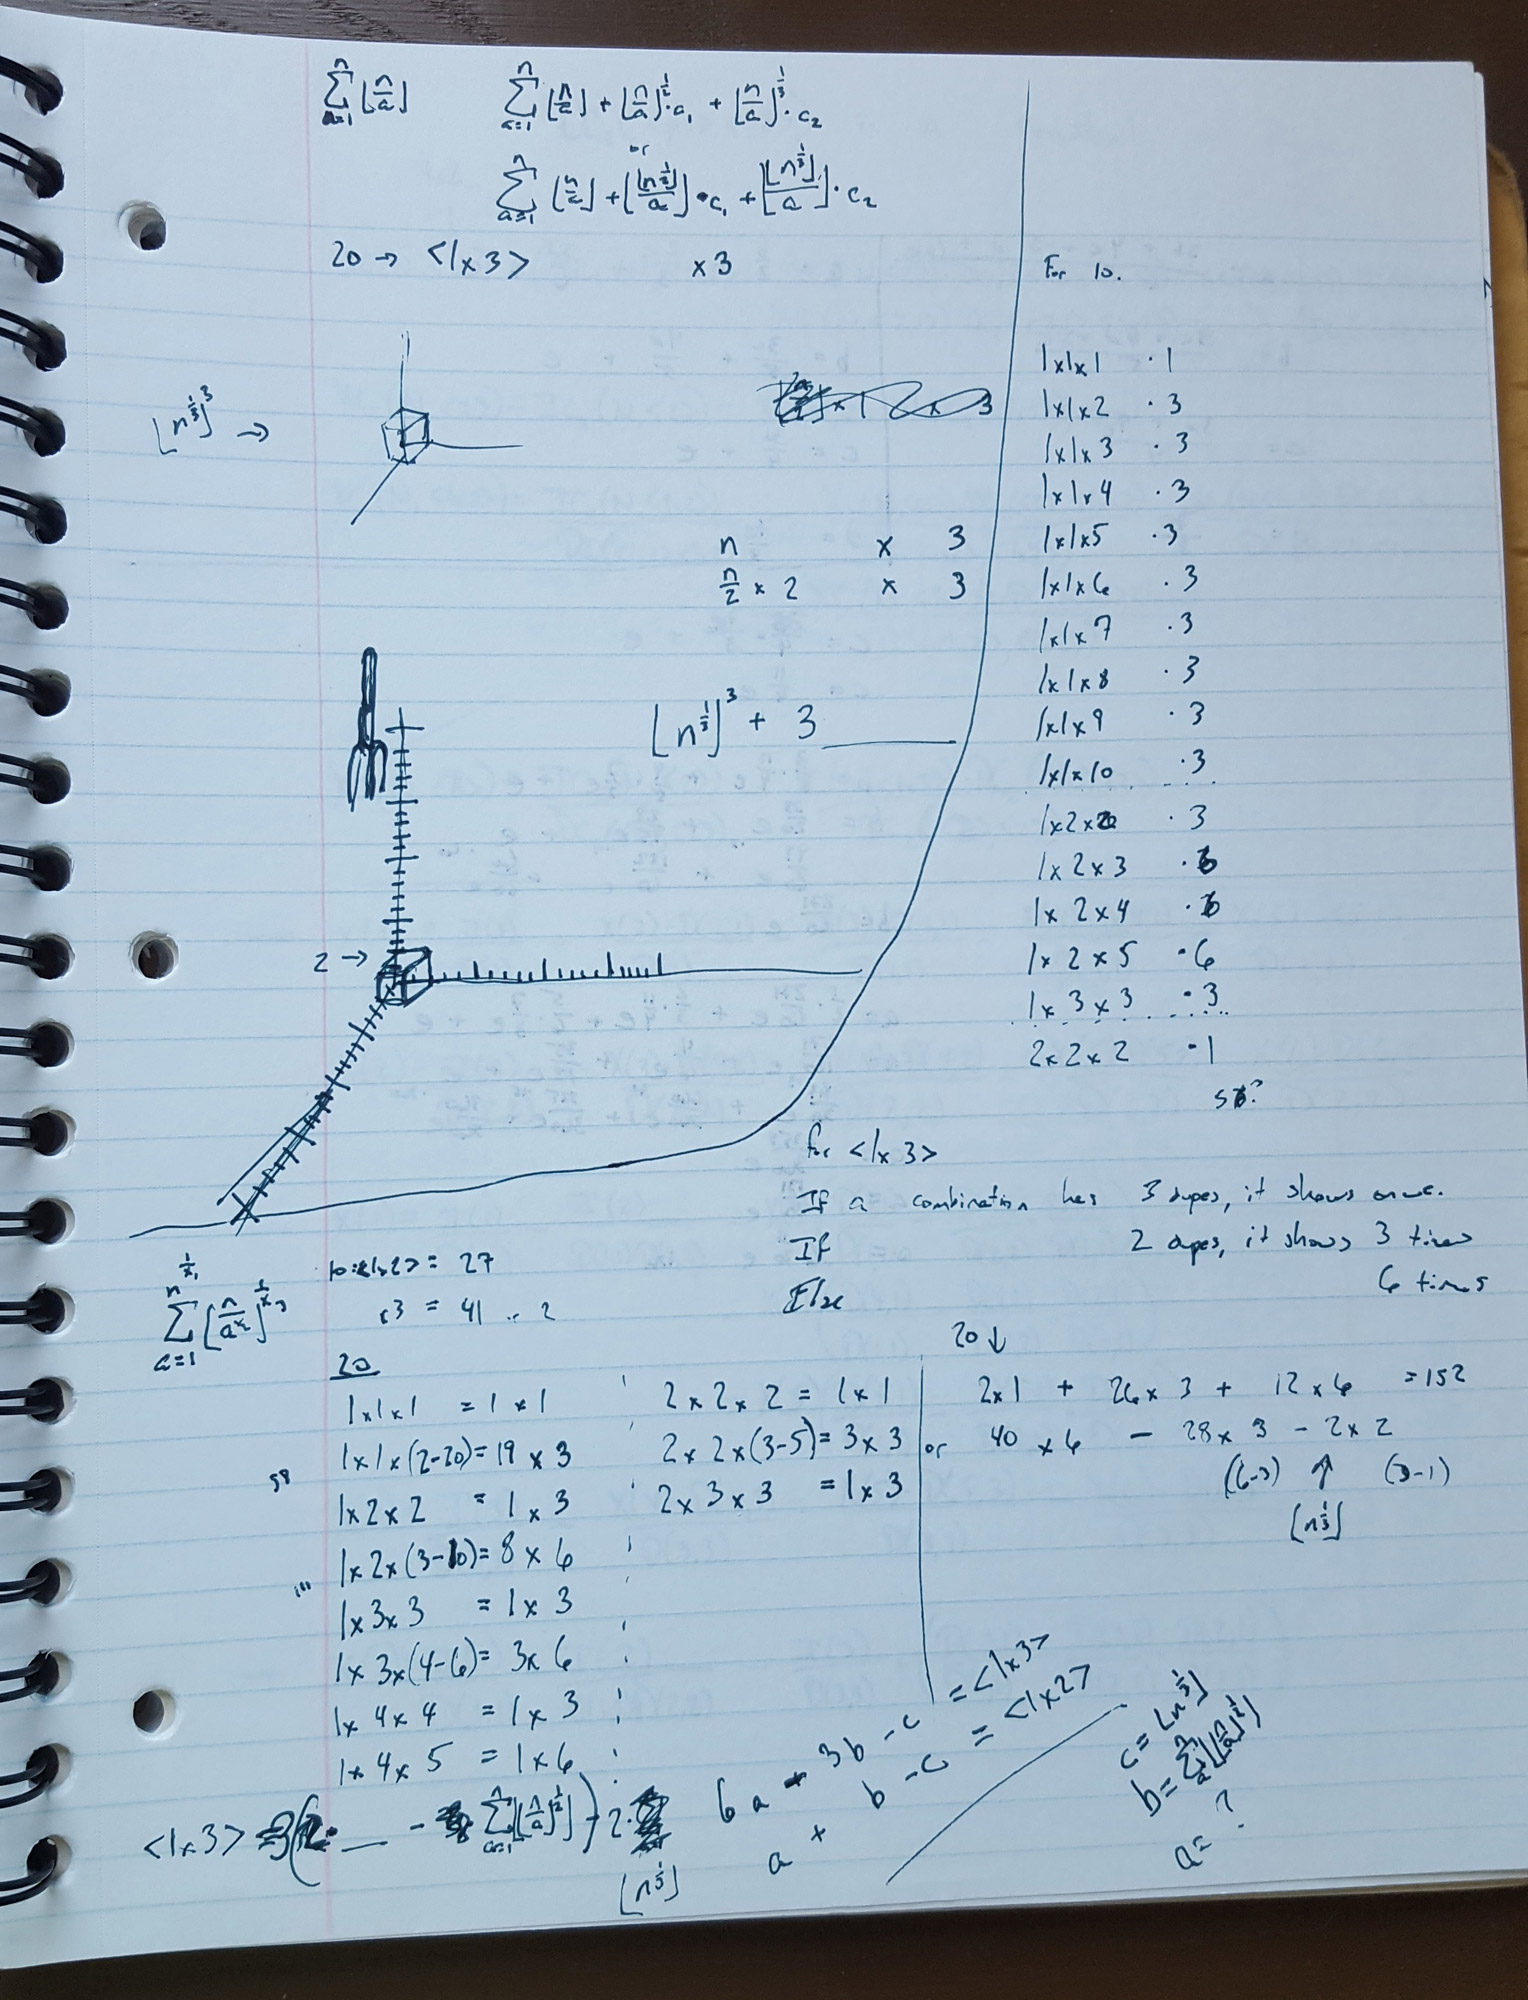 n∑a=1 ⌊n/a⌋    n∑a=1 ⌊n/a⌋ + ⌊n/a⌋^1/2 · c₁ + ⌊n/a⌋^1/3 · c₂
or
n∑a=1 ⌊n/a⌋ + ⌊⌊n^1/2⌋/a⌋ · c₁ + ⌊⌊n^1/3⌋/a⌋ · c₂
20 → <1x3>    x3
⌊n^1/3⌋^3 →
n x 3
n/2 x 2 x 3
⌊n^1/3⌋^3 + 3 ____
2 →
For 10.
1x1x1 · 1
1x1x2 · 3
1x1x3 · 3
1x1x4 · 3
1x1x5 · 3
1x1x6 · 3
1x1x7 · 3
1x1x8 · 3
1x1x9 · 3
1x1x10 · 3
1x2x2 · 3
1x2x3 · 6
1x2x4 · 6
1x2x5 · 6
1x3x3 · 3
2x2x2 · 1
for <1x3>
If a combination has 3 dupes, it shows once.
If 2 dupes, it shows 3 times
Else 6 times
= 27
= 41
n^1/x₁ ∑a=1 ⌊n/a^x₂⌋^1/x₃
20
1x1x1 = 1x1
1x1x(2-20) = 19 x 3
1x2x2 = 1x3
1x2x(3-10) = 8x6
1x3x3 = 1x3
1x3x(4-6) = 3x6
1x4x4 = 1x3
1x4x5 = 1x6
2x2x2 = 1x1
2x2x(3-5) = 3x3
2x3x3 = 1x3
20↓
2x1 + 26x3 + 12x6 = 152
or 40x6 - 28x3 - 2x2
(6-3) ↑ (3-1)
⌊n^1/3⌋
<1x3> = 3( __ - n∑a=1 ⌊⌊n/a⌋^1/2⌋) - 2·
⌊n^1/3⌋
6a - 3b - c = <1x3>
a + b - c = <1x2>
c = ⌊n^1/3⌋
b = n∑a ⌊⌊n/a⌋^1/2⌋
a = ?